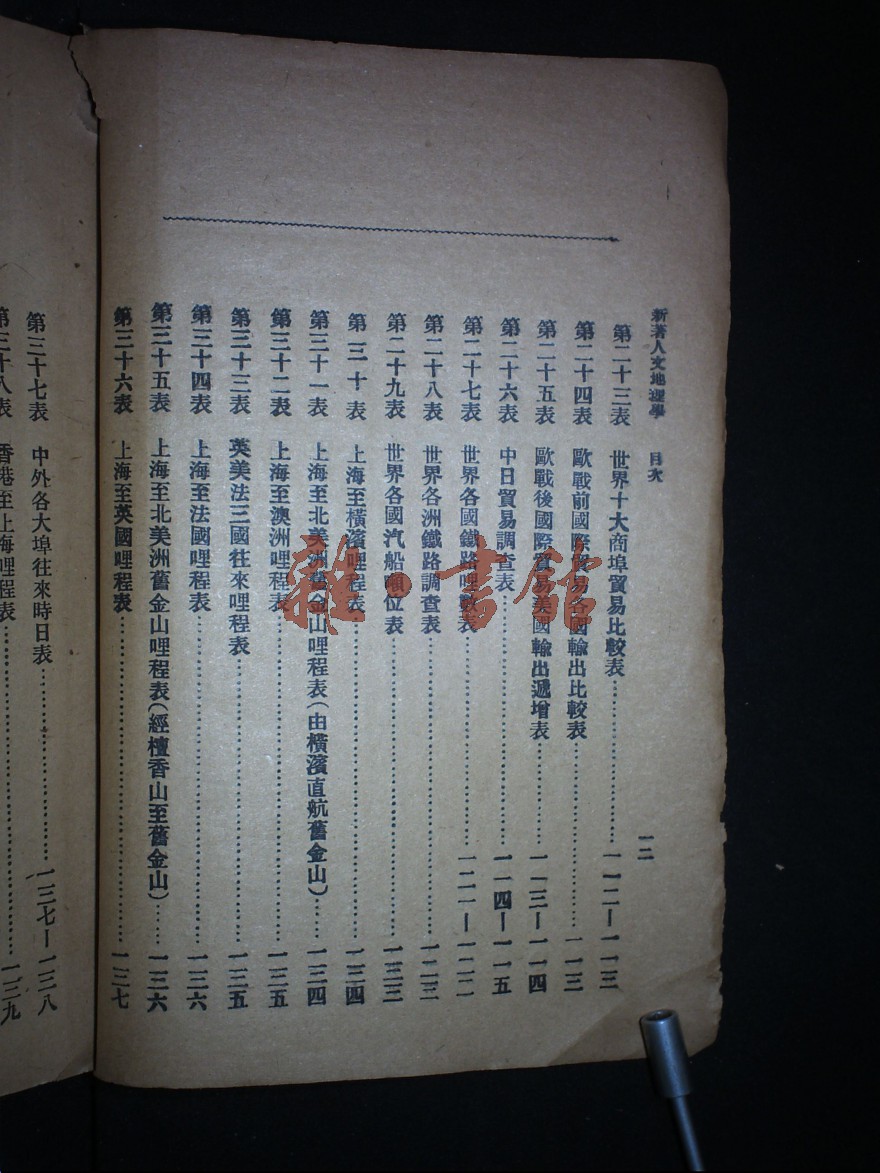 新著人文地理學 目次 一二
第二十三表 世界十大商埠貿易比較表…………一一二—一一三
第二十四表 歐戰前國際貿易各國輸出比較表…………一一三
第二十五表 歐戰後國際貿易美國輸出遞增表…………一一三—一一四
第二十六表 中日貿易調查表…………一一四—一一五
第二十七表 世界各國鐵路哩數表…………一二一—一二二
第二十八表 世界各洲鐵路調查表…………一二三
第二十九表 世界各國汽船噸位表…………一三三
第三十表 上海至橫濱哩程表…………一三四
第三十一表 上海至北美洲舊金山哩程表(由橫濱直航舊金山)……一三四
第三十二表 上海至澳洲哩程表…………一三五
第三十三表 英美法三國往來哩程表…………一三五
第三十四表 上海至法國哩程表…………一三六
第三十五表 上海至北美洲舊金山哩程表(經檀香山至舊金山)……一三六
第三十六表 上海至英國哩程表…………一三七
第三十七表 中外各大埠往來時日表…………一三七—一三八
第三十八表 香港至上海哩程表…………一三九
雜·書館